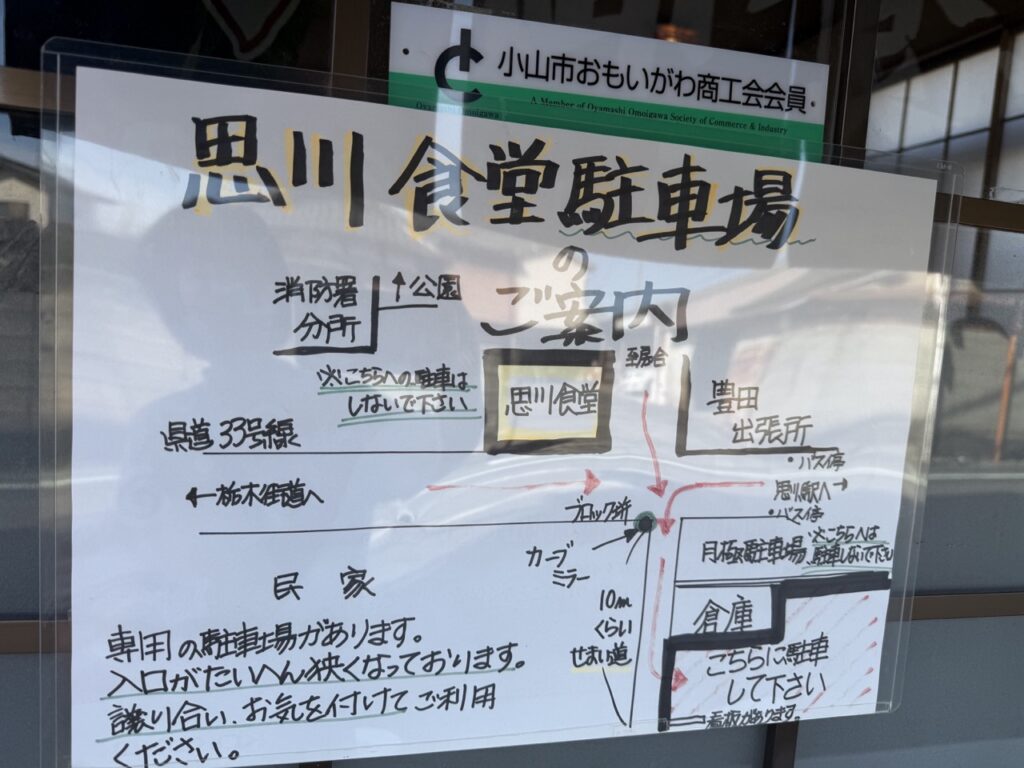 小山市おもいがわ商工会会員
A Member of Oyamashi Omoigawa Society of Commerce & Industry
思川食堂駐車場
の
ご案内
消防署
分所
↑公園
※こちらへの駐車は
しないで下さい
思川食堂
豊田
出張所
県道33号線
・バス停
←栃木街道へ
思川駅へ→
・バス停
ブロック塀
カーブ
ミラー
月極駐車場
※こちらへは
駐車しないで下さい
民家
10m
くらい
せまい道
倉庫
こちらに駐車
して下さい
看板があります。
専用の駐車場があります。
入口がたいへん狭くなっております。
譲り合い、お気を付けてご利用
ください。